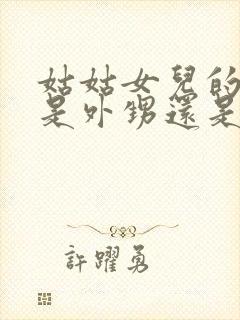 姑姑女兒的
是外甥還是
許躍勇